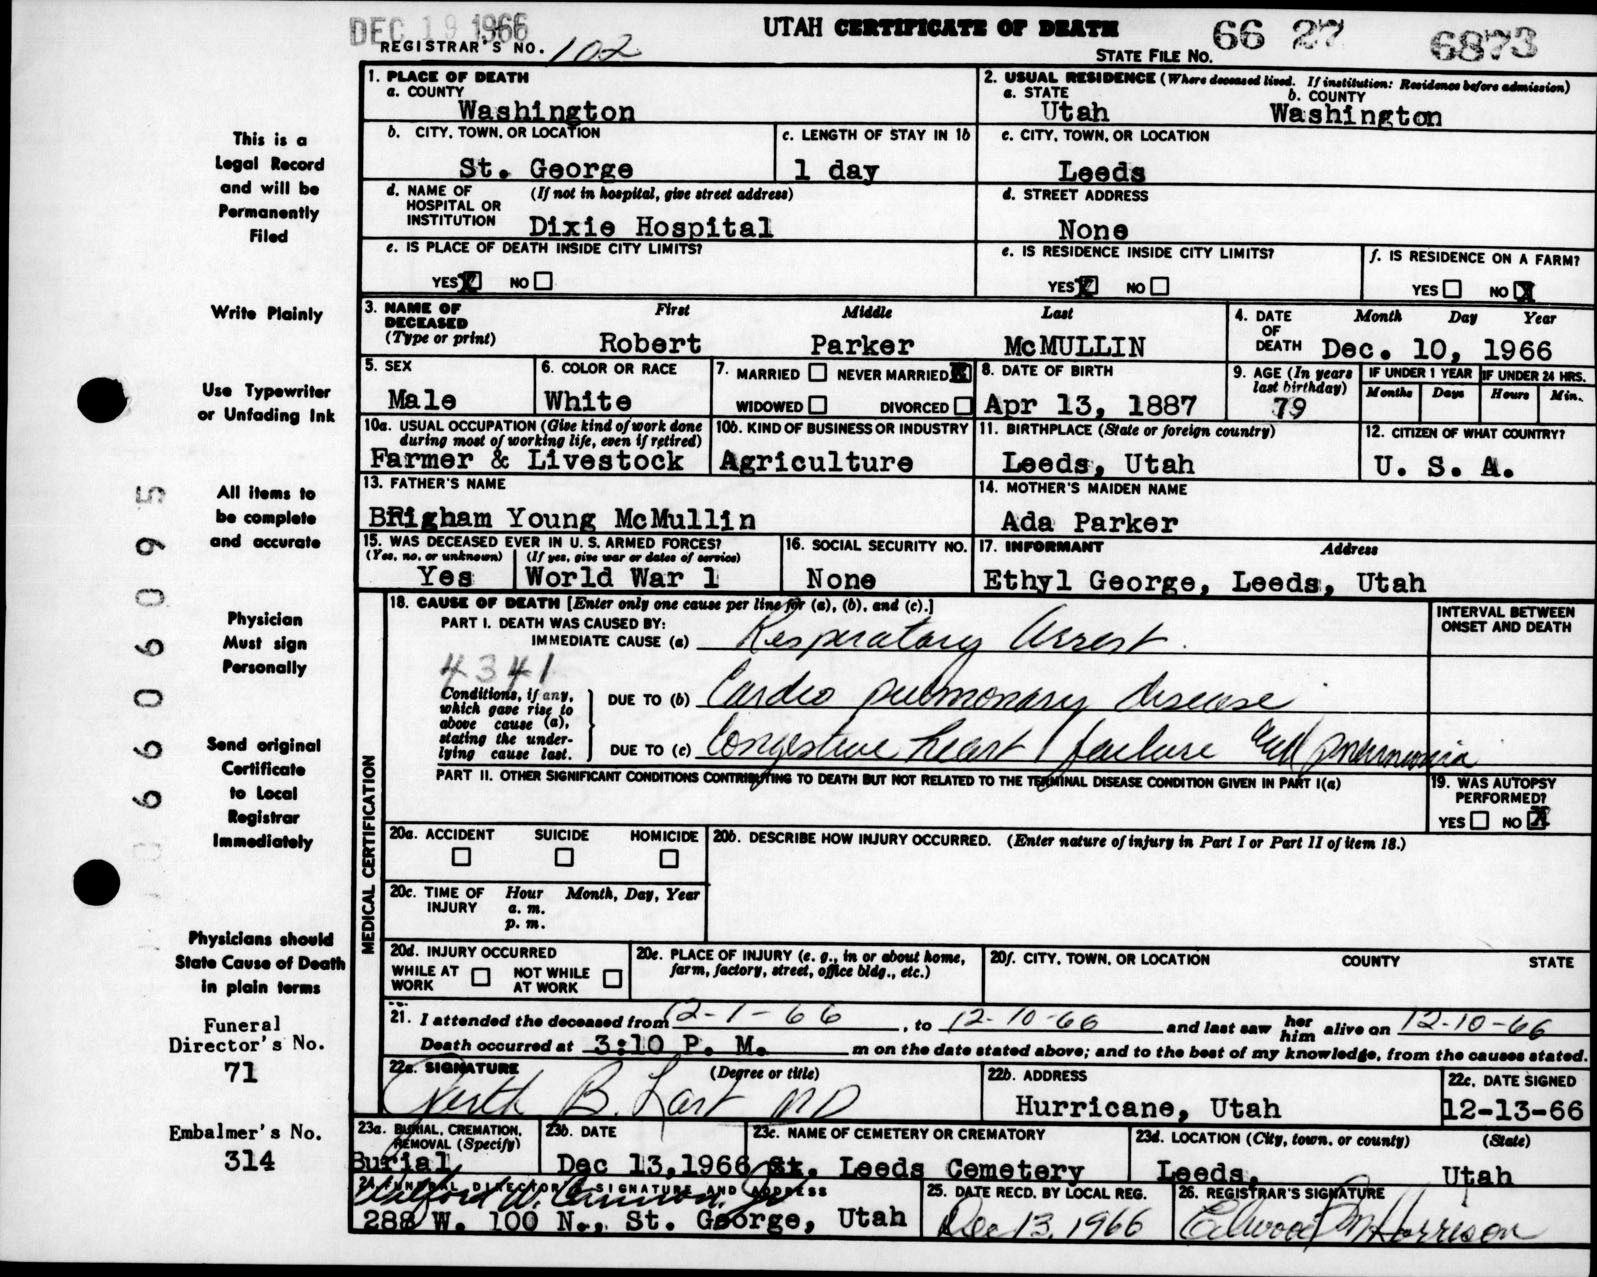 DEC 19 1966
UTAH CERTIFICATE OF DEATH
66 27 6873
REGISTRAR'S NO. 102
STATE FILE NO.
1. PLACE OF DEATH
a. COUNTY
Washington
2. USUAL RESIDENCE (Where deceased lived. If institution: Residence before admission)
a. STATE
Utah
b. COUNTY
Washington
b. CITY, TOWN, OR LOCATION
St. George
c. LENGTH OF STAY IN 1b
1 day
c. CITY, TOWN, OR LOCATION
Leeds
d. NAME OF HOSPITAL OR INSTITUTION
(If not in hospital, give street address)
Dixie Hospital
d. STREET ADDRESS
None
e. IS PLACE OF DEATH INSIDE CITY LIMITS?
YES X NO
e. IS RESIDENCE INSIDE CITY LIMITS?
YES X NO
f. IS RESIDENCE ON A FARM?
YES NO X
3. NAME OF DECEASED (Type or print)
First Middle Last
Robert Parker McMULLIN
4. DATE OF DEATH
Month Day Year
Dec. 10, 1966
5. SEX
Male
6. COLOR OR RACE
White
7. MARRIED NEVER MARRIED X
WIDOWED DIVORCED
8. DATE OF BIRTH
Apr 13, 1887
9. AGE (In years last birthday)
79
IF UNDER 1 YEAR
Months Days
IF UNDER 24 HRS.
Hours Min.
10a. USUAL OCCUPATION (Give kind of work done during most of working life, even if retired)
Farmer & Livestock
10b. KIND OF BUSINESS OR INDUSTRY
Agriculture
11. BIRTHPLACE (State or foreign country)
Leeds, Utah
12. CITIZEN OF WHAT COUNTRY?
U. S. A.
13. FATHER'S NAME
Brigham Young McMullin
14. MOTHER'S MAIDEN NAME
Ada Parker
15. WAS DECEASED EVER IN U. S. ARMED FORCES?
(Yes, no, or unknown) (If yes, give war or dates of service)
Yes World War 1
16. SOCIAL SECURITY NO.
None
17. INFORMANT Address
Ethyl George, Leeds, Utah
18. CAUSE OF DEATH [Enter only one cause per line for (a), (b), and (c).]
PART I. DEATH WAS CAUSED BY:
IMMEDIATE CAUSE (a) Respiratory Arrest
4341
Conditions, if any, which gave rise to above cause (a), stating the underlying cause last.
DUE TO (b) Cardio pulmonary disease
DUE TO (c) Congestive heart failure and pneumonia
INTERVAL BETWEEN ONSET AND DEATH
PART II. OTHER SIGNIFICANT CONDITIONS CONTRIBUTING TO DEATH BUT NOT RELATED TO THE TERMINAL DISEASE CONDITION GIVEN IN PART I(a)
19. WAS AUTOPSY PERFORMED?
YES NO X
20a. ACCIDENT SUICIDE HOMICIDE
20b. DESCRIBE HOW INJURY OCCURRED. (Enter nature of injury in Part I or Part II of item 18.)
20c. TIME OF INJURY
Hour Month, Day, Year
a. m.
p. m.
20d. INJURY OCCURRED
WHILE AT WORK NOT WHILE AT WORK
20e. PLACE OF INJURY (e. g., in or about home, farm, factory, street, office bldg., etc.)
20f. CITY, TOWN, OR LOCATION COUNTY STATE
MEDICAL CERTIFICATION
21. I attended the deceased from 12-1-66, to 12-10-66 and last saw her him alive on 12-10-66
Death occurred at 3:10 P. M. m on the date stated above; and to the best of my knowledge, from the causes stated.
22a. SIGNATURE (Degree or title)
MD
22b. ADDRESS
Hurricane, Utah
22c. DATE SIGNED
12-13-66
23a. BURIAL, CREMATION, REMOVAL (Specify)
Burial
23b. DATE
Dec 13, 1966
23c. NAME OF CEMETERY OR CREMATORY
Leeds Cemetery
23d. LOCATION (City, town, or county) (State)
Leeds, Utah
24. FUNERAL DIRECTOR'S SIGNATURE AND ADDRESS
288 W. 100 N., St. George, Utah
25. DATE RECD. BY LOCAL REG.
Dec 13, 1966
26. REGISTRAR'S SIGNATURE
Harrison
This is a
Legal Record
and will be
Permanently
Filed
Write Plainly
Use Typewriter
or Unfading Ink
All items to
be complete
and accurate
Physician
Must sign
Personally
Send original
Certificate
to Local
Registrar
Immediately
Physicians should
State Cause of Death
in plain terms
Funeral
Director's No.
71
Embalmer's No.
314
0660609 5